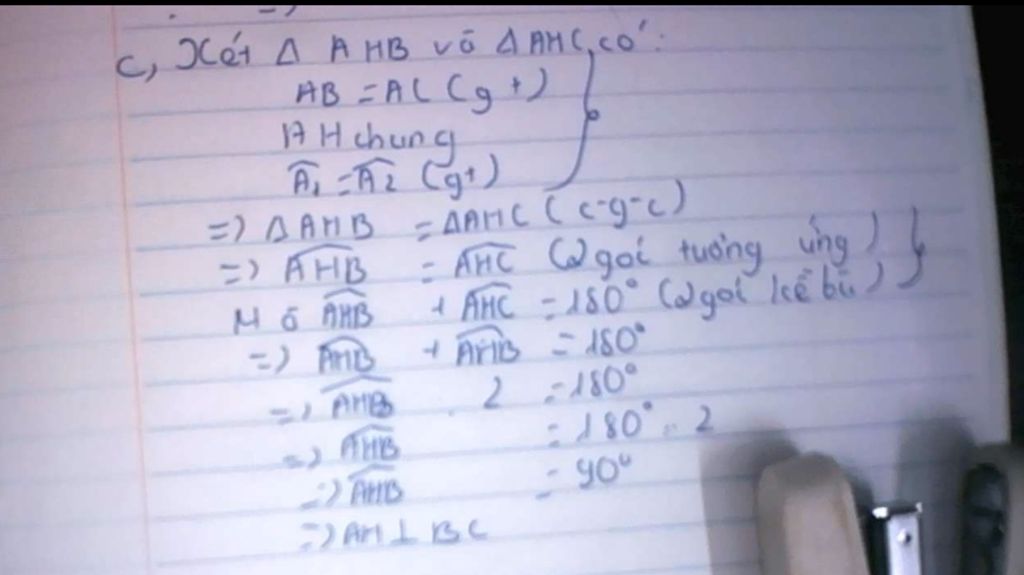 c, Xét Δ AHB và Δ AHC, có:
AB = AC (gt)
AH chung
Â₁ = Â₂ (gt)
=> Δ AHB = Δ AHC (c-g-c)
=> AHB = AHC (2 góc tương ứng)
Mà AHB + AHC = 180° (2 góc kề bù)
=> AHB + AHB = 180°
=> AHB . 2 = 180°
=> AHB = 180° : 2
=> AHB = 90°
=> AH ⊥ BC